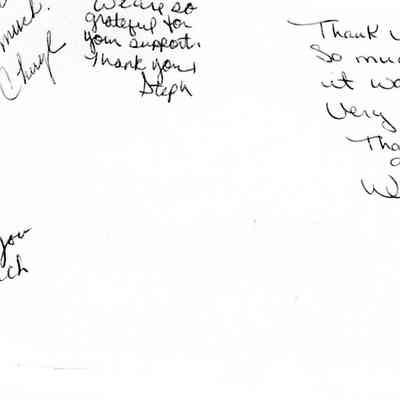 much.
Cheryl
We are so
grateful for
your support.
Thank you!
Steph
Thank
So much
it wa
Very
Tha
We
you
ch